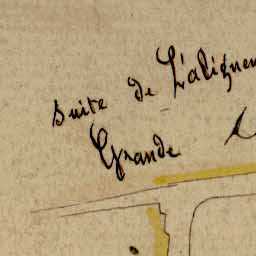 suite de L'aligne
Grande